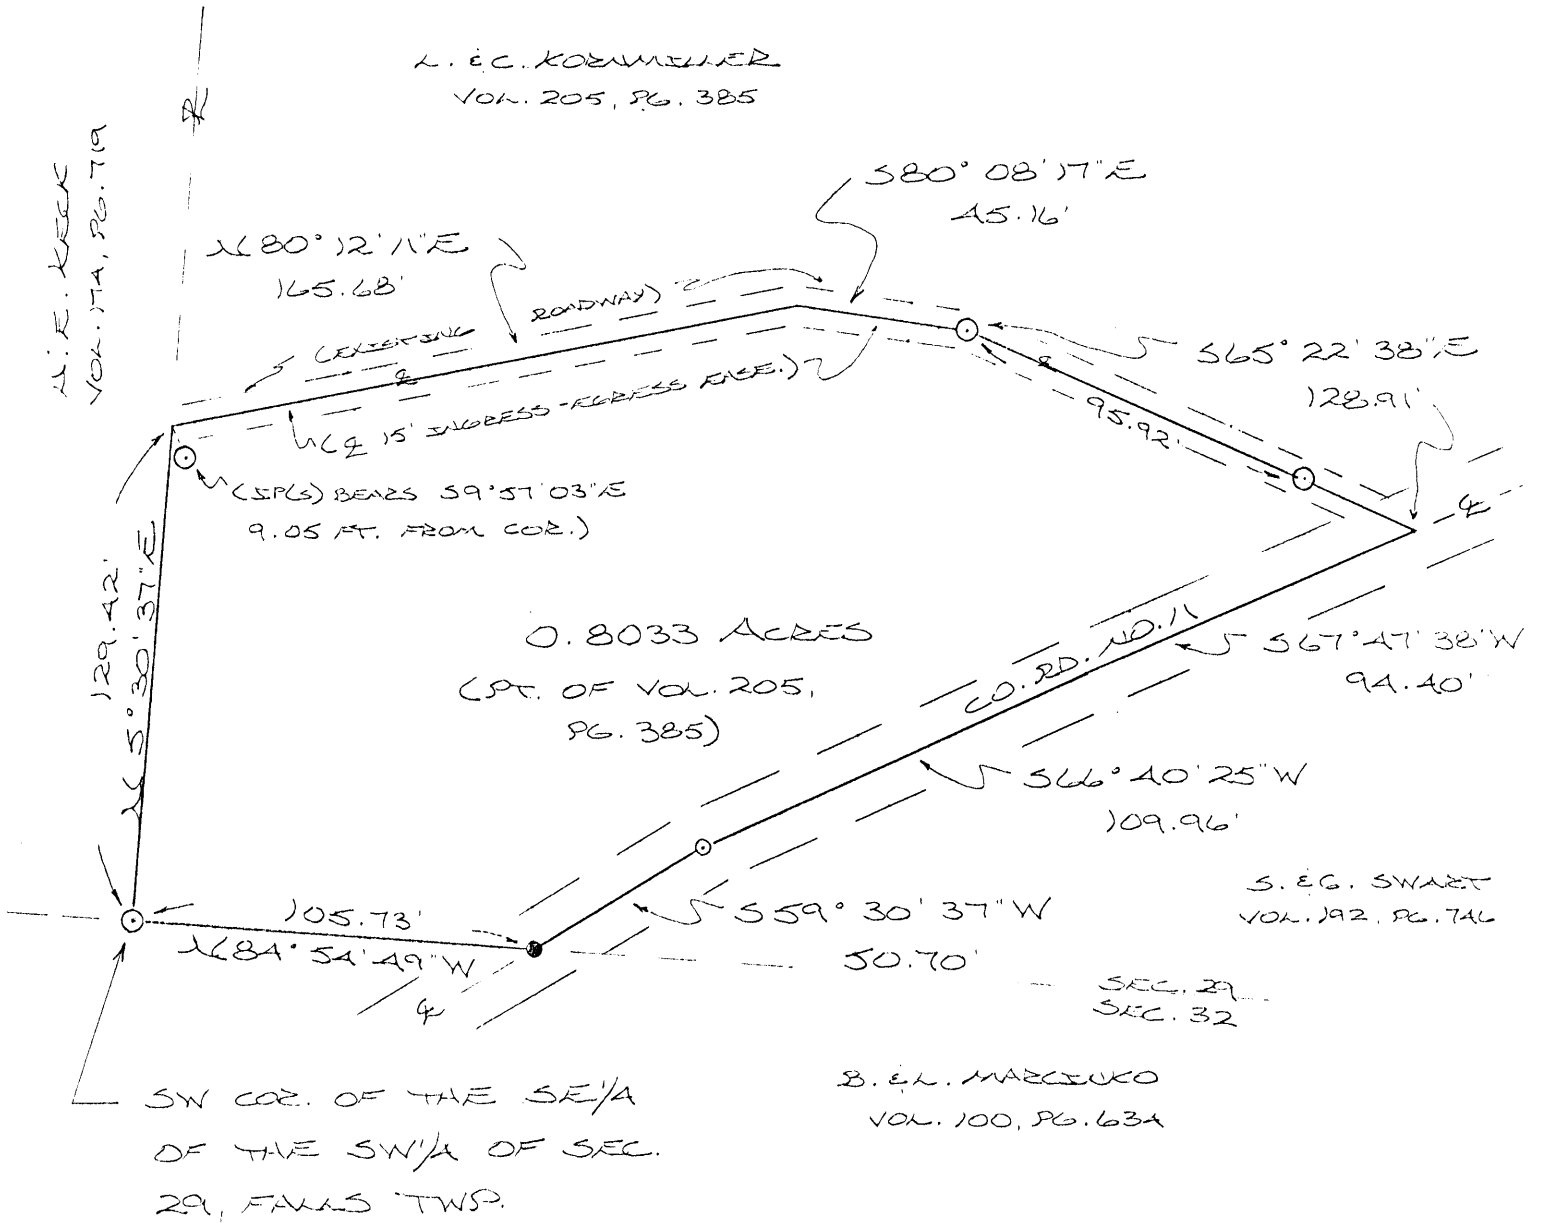 L. & C. KORNMILLER
VOL. 205, PG. 385
H. E. KECK
VOL. 174, PG. 719
S80° 08' 17" E
45.16'
N 80° 12' 11" E
165.68'
(EXISTING ROADWAY)
(℄ 15' INGRESS-EGRESS EASE.)
S65° 22' 38" E
128.91'
95.92'
℄
℄
(IP(S) BEARS S9°57'03"E
9.05 FT. FROM COR.)
129.42'
N 5° 30' 37" E
0.8033 ACRES
(PT. OF VOL. 205,
PG. 385)
CO. RD. NO. 11
S67° 47' 38" W
94.40'
S66° 40' 25" W
109.96'
S. & G. SWART
VOL. 192, PG. 746
S59° 30' 37" W
50.70'
105.73'
N84° 54' 49" W
℄
SEC. 29
SEC. 32
B. & L. MARCINKO
VOL. 100, PG. 634
SW COR. OF THE SE1/4
OF THE SW1/4 OF SEC.
29, FALLS TWP.